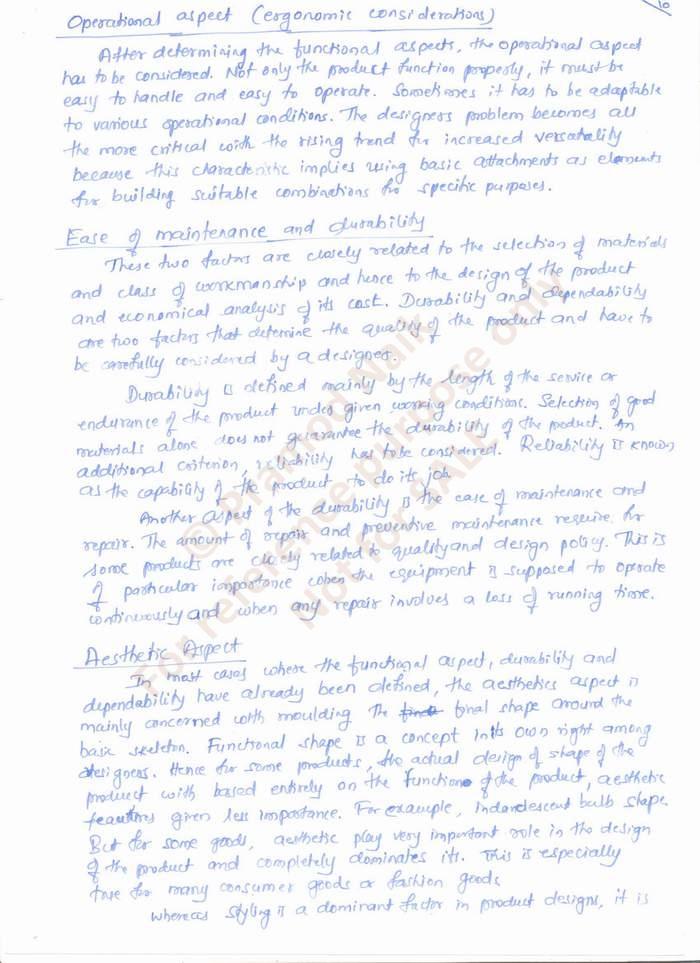 10
Operational aspect (ergonomic considerations)
After determining the functional aspects, the operational aspect
has to be considered. Not only the product function properly, it must be
easy to handle and easy to operate. Sometimes it has to be adaptable
to various operational conditions. The designers problem becomes all
the more critical with the rising trend for increased versatality
because this characteristic implies using basic attachments as elements
for building suitable combinations for specific purposes.
Ease of maintenance and durability
These two factors are closely related to the selection of materials
and class of workmanship and hence to the design of the product
and economical analysis of its cost. Durability and dependability
are two factors that determine the quality of the product and have to
be carefully considered by a designer.
Durability is defined mainly by the length of the service or
endurance of the product under given working conditions. Selection of good
materials alone does not guarantee the durability of the product. An
additional criterion, reliability has to be considered. Reliability is known
as the capability of the product to do its job.
Another aspect of the durability is the ease of maintenance and
repair. The amount of repair and preventive maintenance require for
some products are closely related to quality and design policy. This is
of particular importance when the equipment is supposed to operate
continuously and when any repair involves a loss of running time.
Aesthetic Aspect
In most cases where the functional aspect, durability and
dependability have already been defined, the aesthetics aspect is
mainly concerned with moulding the final shape around the
basic skeleton. Functional shape is a concept in its own right among
designers. Hence for some products, the actual design of shape of the
product with based entirely on the function of the product, aesthetic
features given less importance. For example, indandescent bulb shape.
But for some goods, aesthetic play very important role in the design
of the product and completely dominates its. This is especially
true for many consumer goods or fashion goods
whereas styling is a dominant factor in product designs, it is
© Pramod Naik
For reference purpose only
Not for SALE